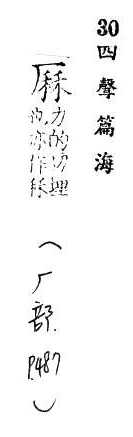 30四聲篇海
厤
力的切理
也亦作
（厂部.P.487）